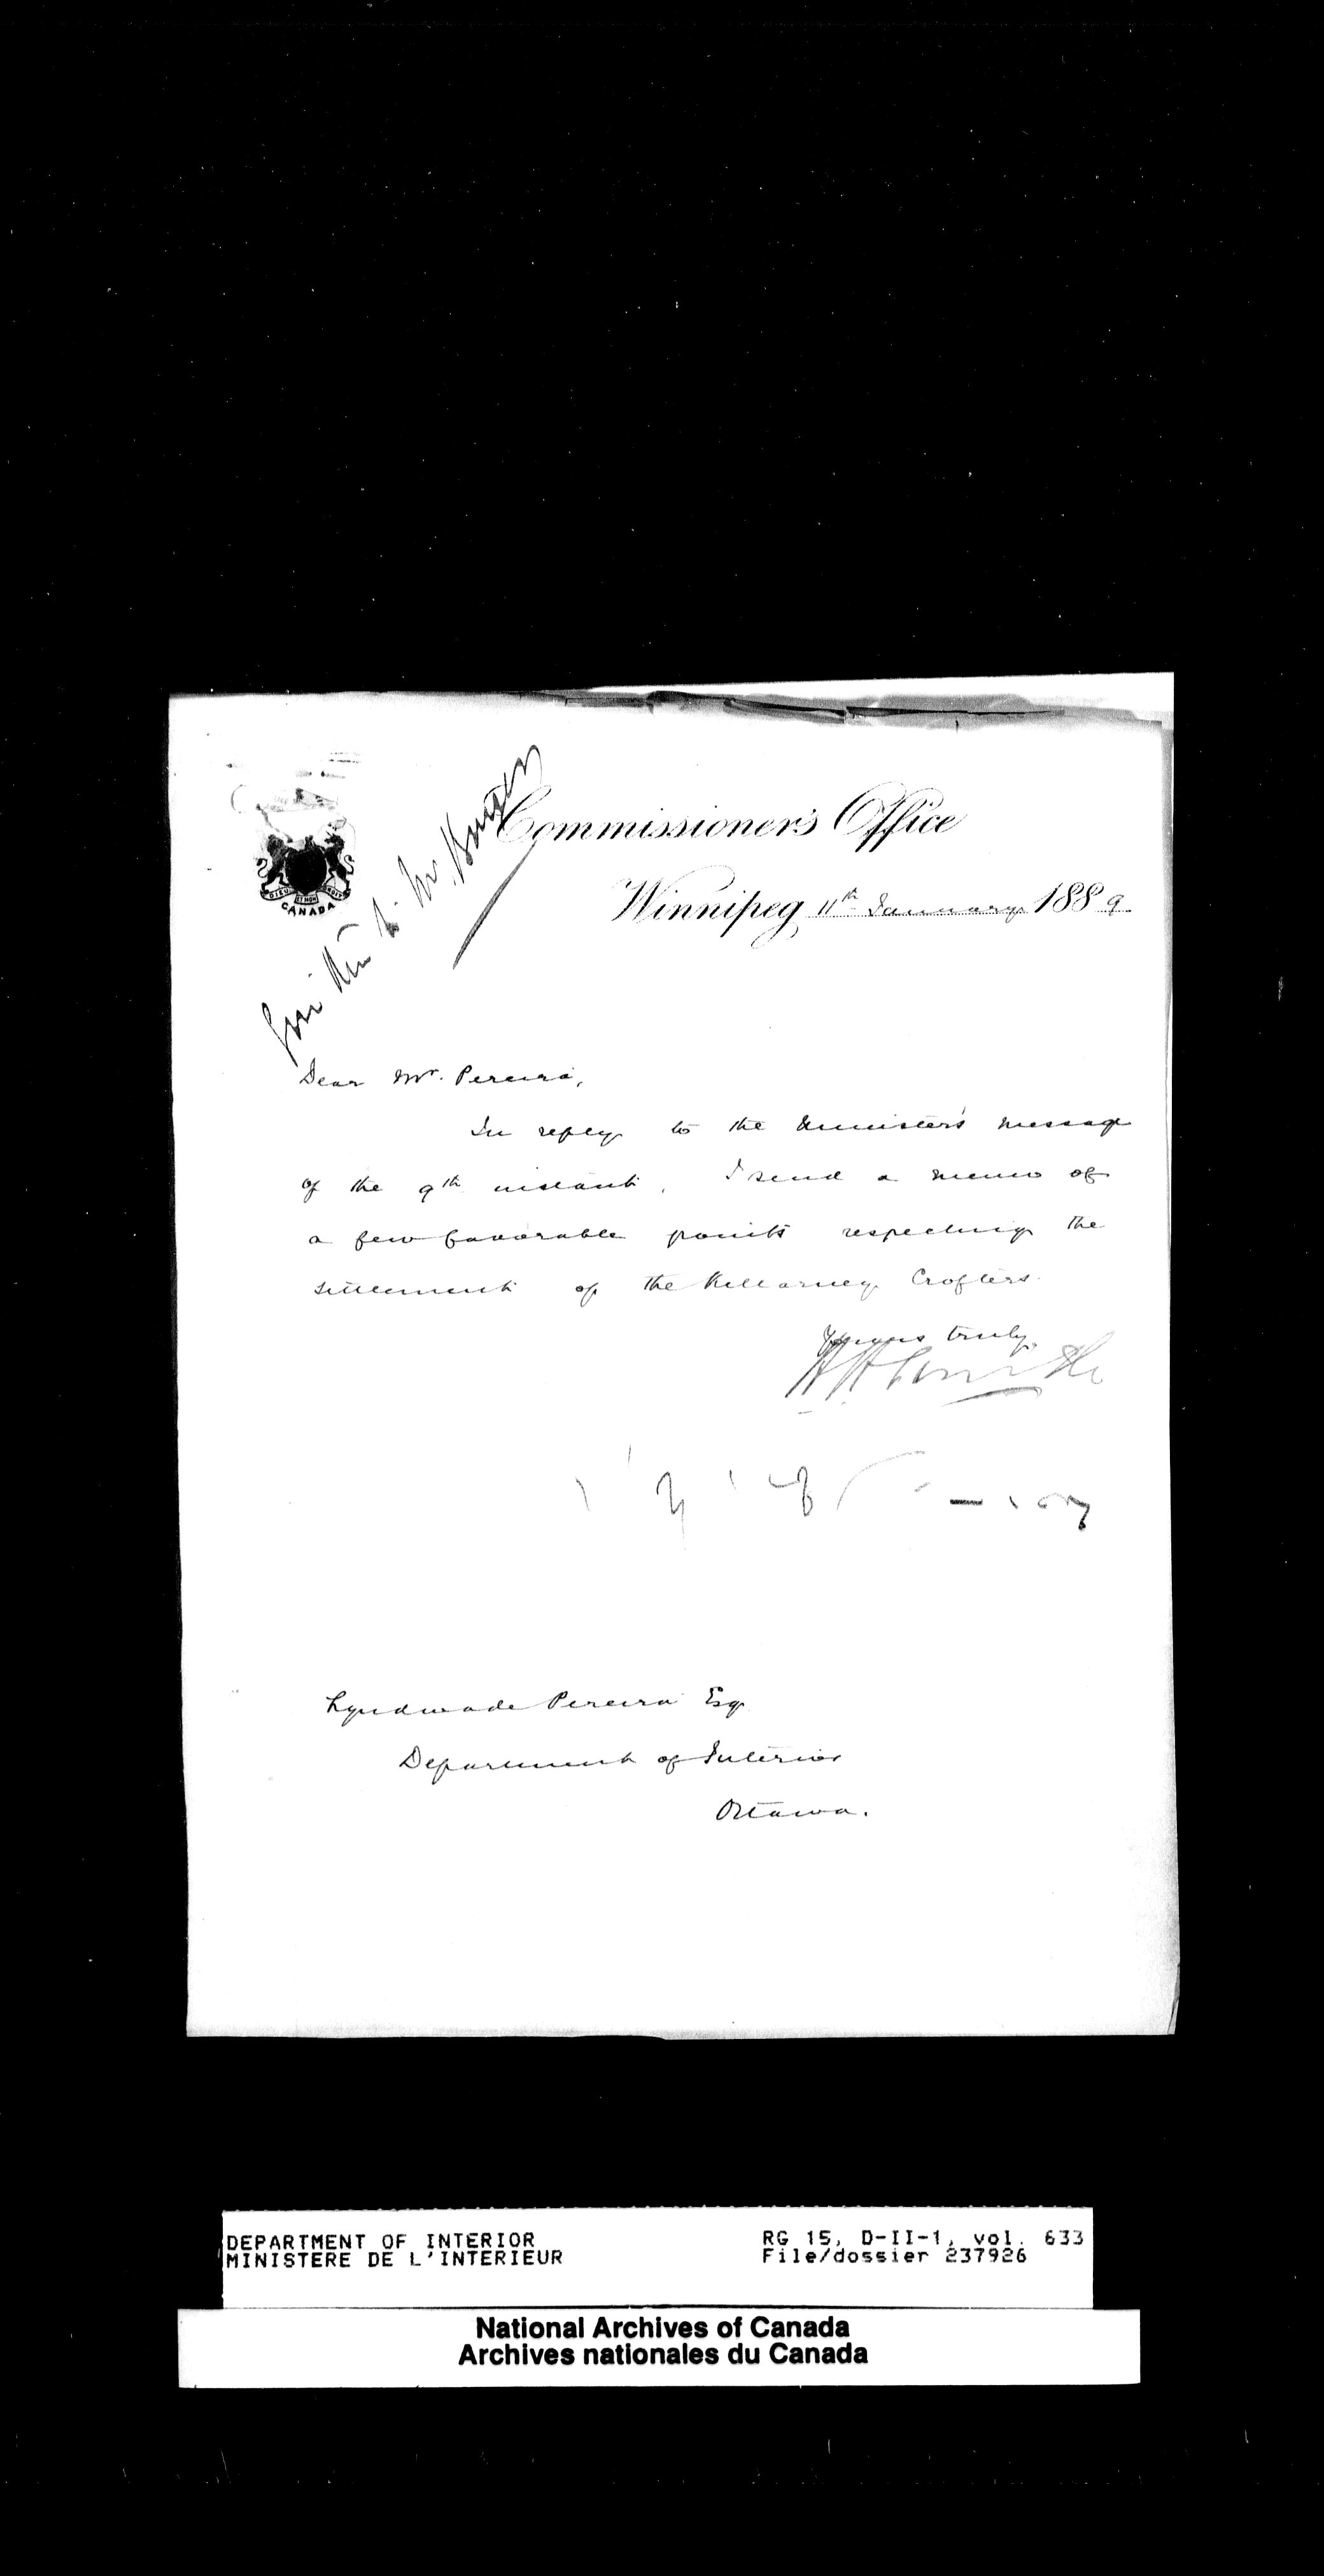 Commissioner's Office
Winnipeg, 11th January 1889.
DIEU ET MON DROIT
CANADA
Give this to Mr. Burgess
Dear Mr. Pereira,
In reply to the Minister's message
of the 9th instant, I send a memo of
a few favorable points respecting the
settlement of the Killarney Crofters.
Yours truly,
H H Smith
Lyndwode Pereira Esq
Department of Interior
Ottawa.
DEPARTMENT OF INTERIOR RG 15, D-II-1, vol. 633
MINISTERE DE L'INTERIEUR File/dossier 237926
National Archives of Canada
Archives nationales du Canada